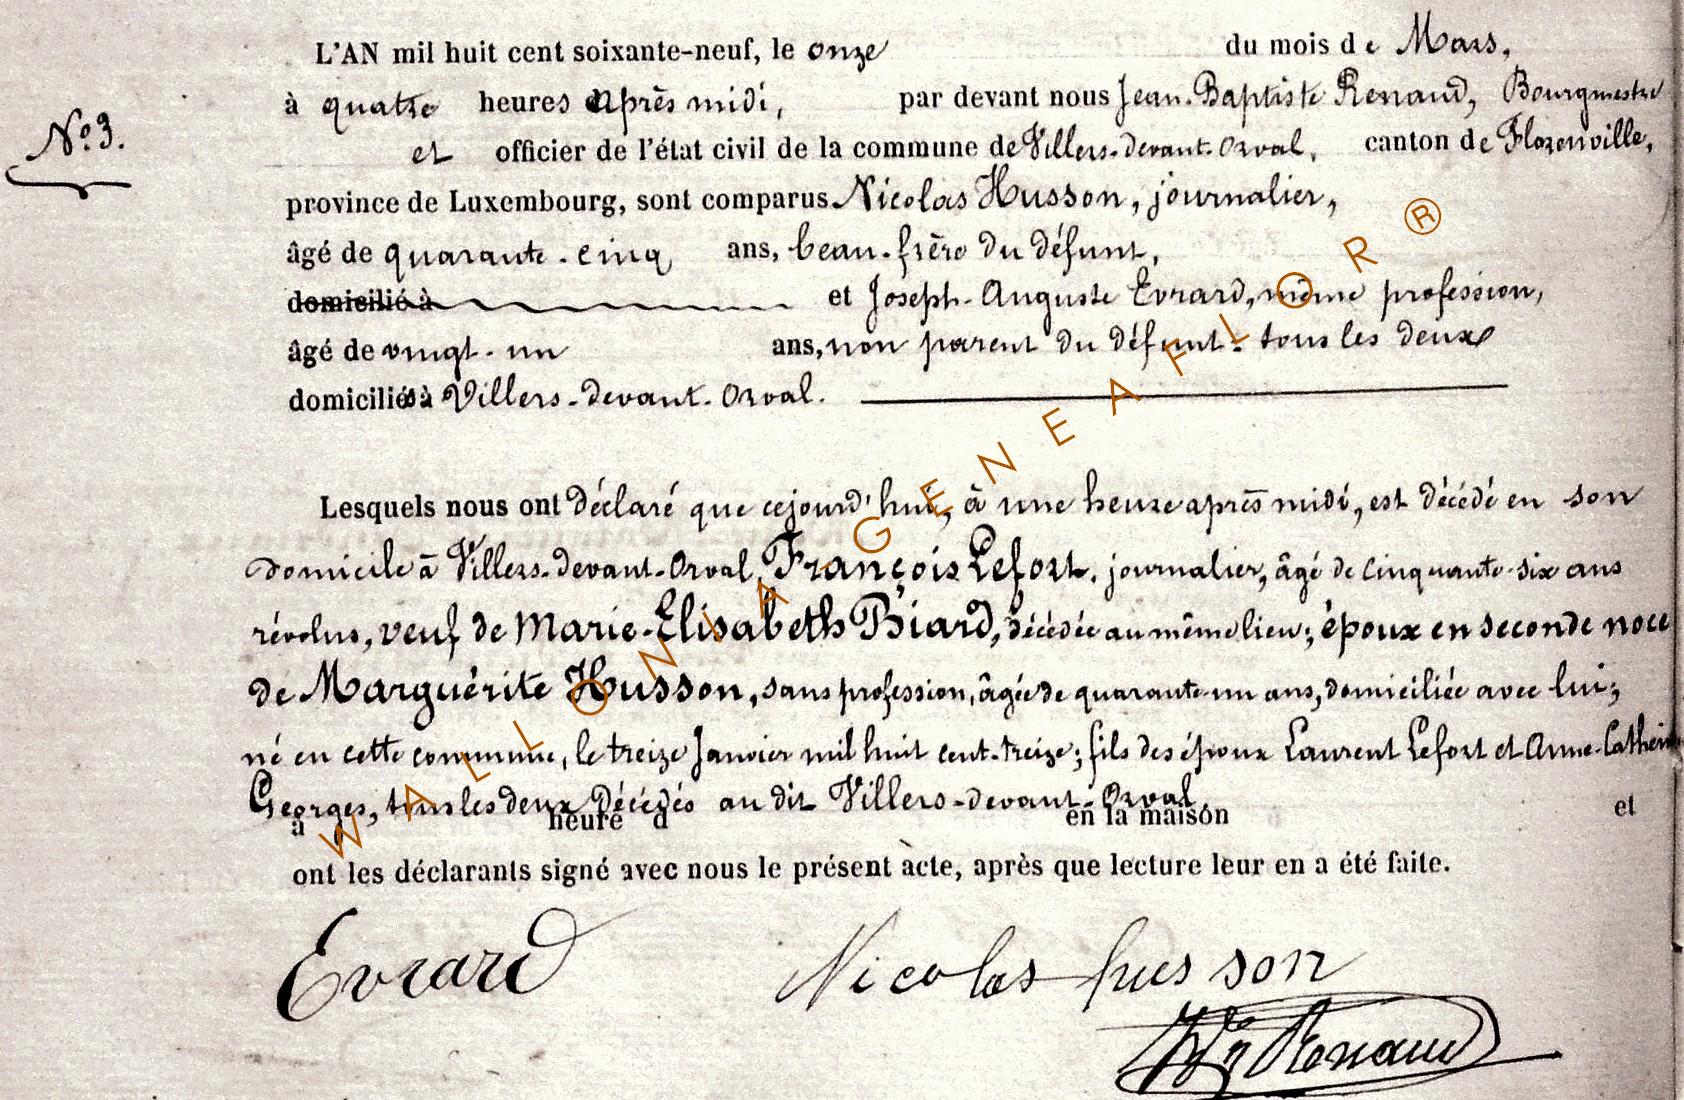 L'AN mil huit cent soixante-neuf, le onze du mois de Mars,
à quatre heures après midi, par devant nous Jean-Baptiste Renaud, Bourgmestre
N.º 3.
et officier de l'état civil de la commune de Villers-devant-Orval, canton de Florenville,
province de Luxembourg, sont comparus Nicolas Husson, journalier,
âgé de quarante-cinq ans, beau-frère du défunt,
domicilié à et Joseph-Auguste Evrard, même profession,
âgé de vingt-un ans, non parent du défunt - tous les deux
domiciliés à Villers-devant-Orval.
Lesquels nous ont déclaré que cejourd'hui, à une heure après midi, est décédé en son
domicile à Villers-devant-Orval, François Lefort, journalier, âgé de cinquante-six ans
révolus, veuf de Marie-Elisabeth Biard, décédée au même lieu; époux en seconde noce
de Marguérite Husson, sans profession, âgée de quarante-un ans, domiciliée avec lui;
né en cette commune, le treize Janvier mil huit cent-treize; fils des époux Laurent Lefort et Anne-Catherine
Georges, tous les deux décédés au dit Villers-devant-Orval.
à heure d en la maison et
ont les déclarants signé avec nous le présent acte, après que lecture leur en a été faite.
Evrard Nicolas husson
Renaud
WALLONIA-GENEAFLOR®